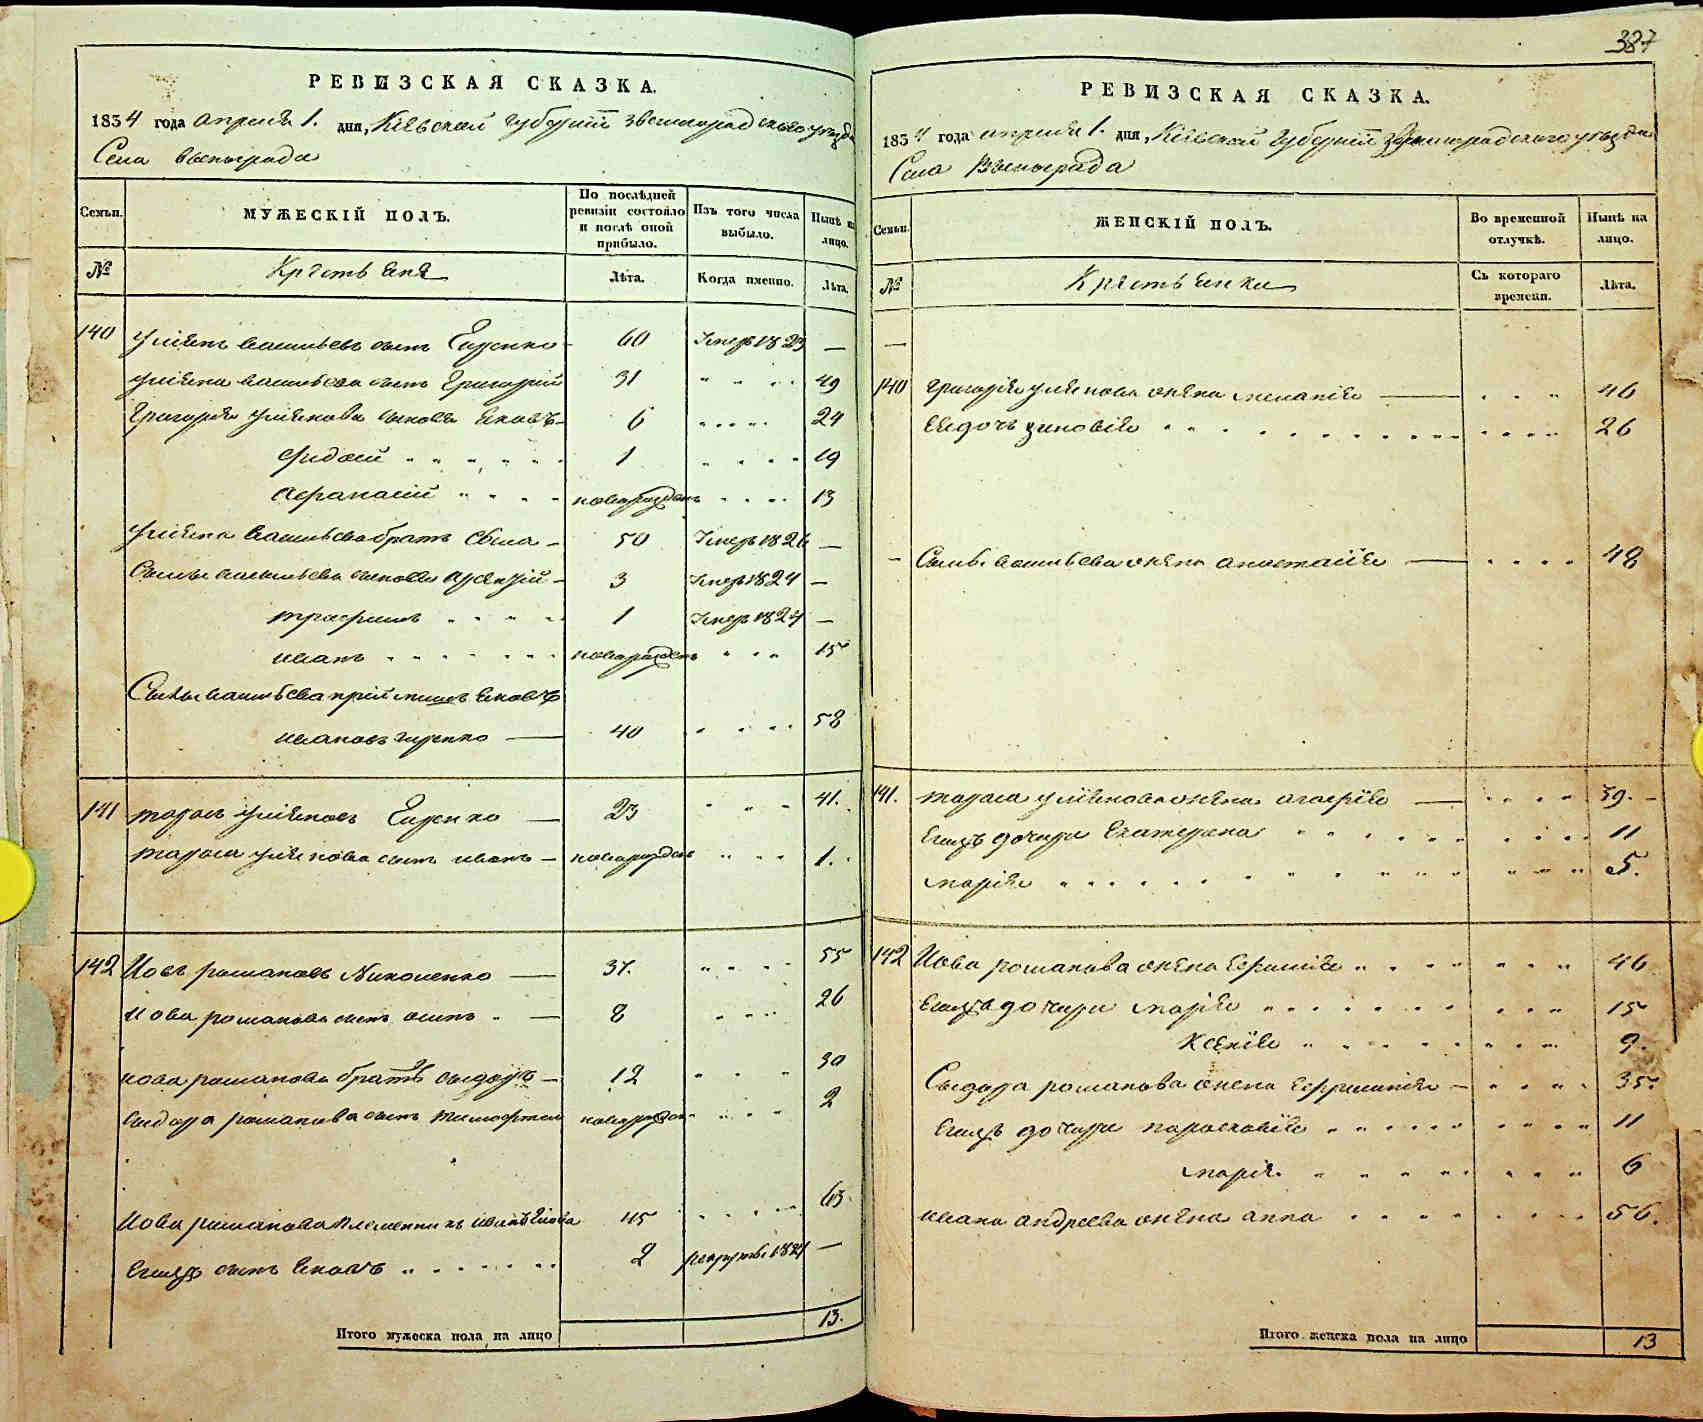 РЕВИЗСКАЯ СКАЗКА.
1834 года апреля 1. дня, Кіевской губерніи Звенигородского уезда
Села Вынограда
Семьи.
МУЖЕСКІЙ ПОЛЪ.
По послѣдней ревизіи состояло и послѣ оной прибыло.
Изъ того числа выбыло.
Нынѣ на лицо.
№
Крестьяня
Лѣта.
Когда именно.
Лѣта.
140 Уліянъ васильевъ сынъ 60 Умеръ 1823 —
Уліяна васильева сынъ Григорій 31 49
Григорія Уліянова сыновья Яковъ 6 24
1 19
Афанасій новорожденъ 13
Уліяна васильева братъ 50 Умеръ 1826 —
васильева сыновья 3 Умеръ 1824 —
трофимъ 1 Умеръ 1824 —
иванъ новорожденъ 15
васильева пріймышъ Яковъ
ивановъ 40 58
141 тарасъ Уліяновъ 23 41.
тараса Уліянова сынъ иванъ новорожденъ 1.
142 Иовъ романовъ Николенко 37. 55
Иова романова сынъ осипъ 8 26
Иова романова братъ сыдоръ 12 30
сыдора романова сынъ тимофей новорожден 2
Иова романова племенникъ иванъ 45 63.
Егожъ сынъ Яковъ 2 рекрутъ 1824 —
Итого мужеска пола на лицо 13.
387
РЕВИЗСКАЯ СКАЗКА.
1834 года апреля 1. дня, Кіевской губерніи Звенигородского уезда
Села Вынограда
Семьи.
ЖЕНСКІЙ ПОЛЪ.
Во временной отлучкѣ.
Нынѣ на лицо.
№
Крестьянки
Съ котораго времени.
Лѣта.
140 Григорія Уліянова жена меланія 46
дочь зиновія 26
васильева жена анастасія 48
141. тараса Уліянова жена агафія 39.
Егожъ дочери Екатерина 11
марія 5.
142 Иова романова жена 46
Егожъ дочери марія 15
Ксенія 9.
Сыдора романова жена 35.
Егожъ дочери парасковія 11
марія 6
ивана андреева жена анна 56.
Итого женска пола на лицо 13